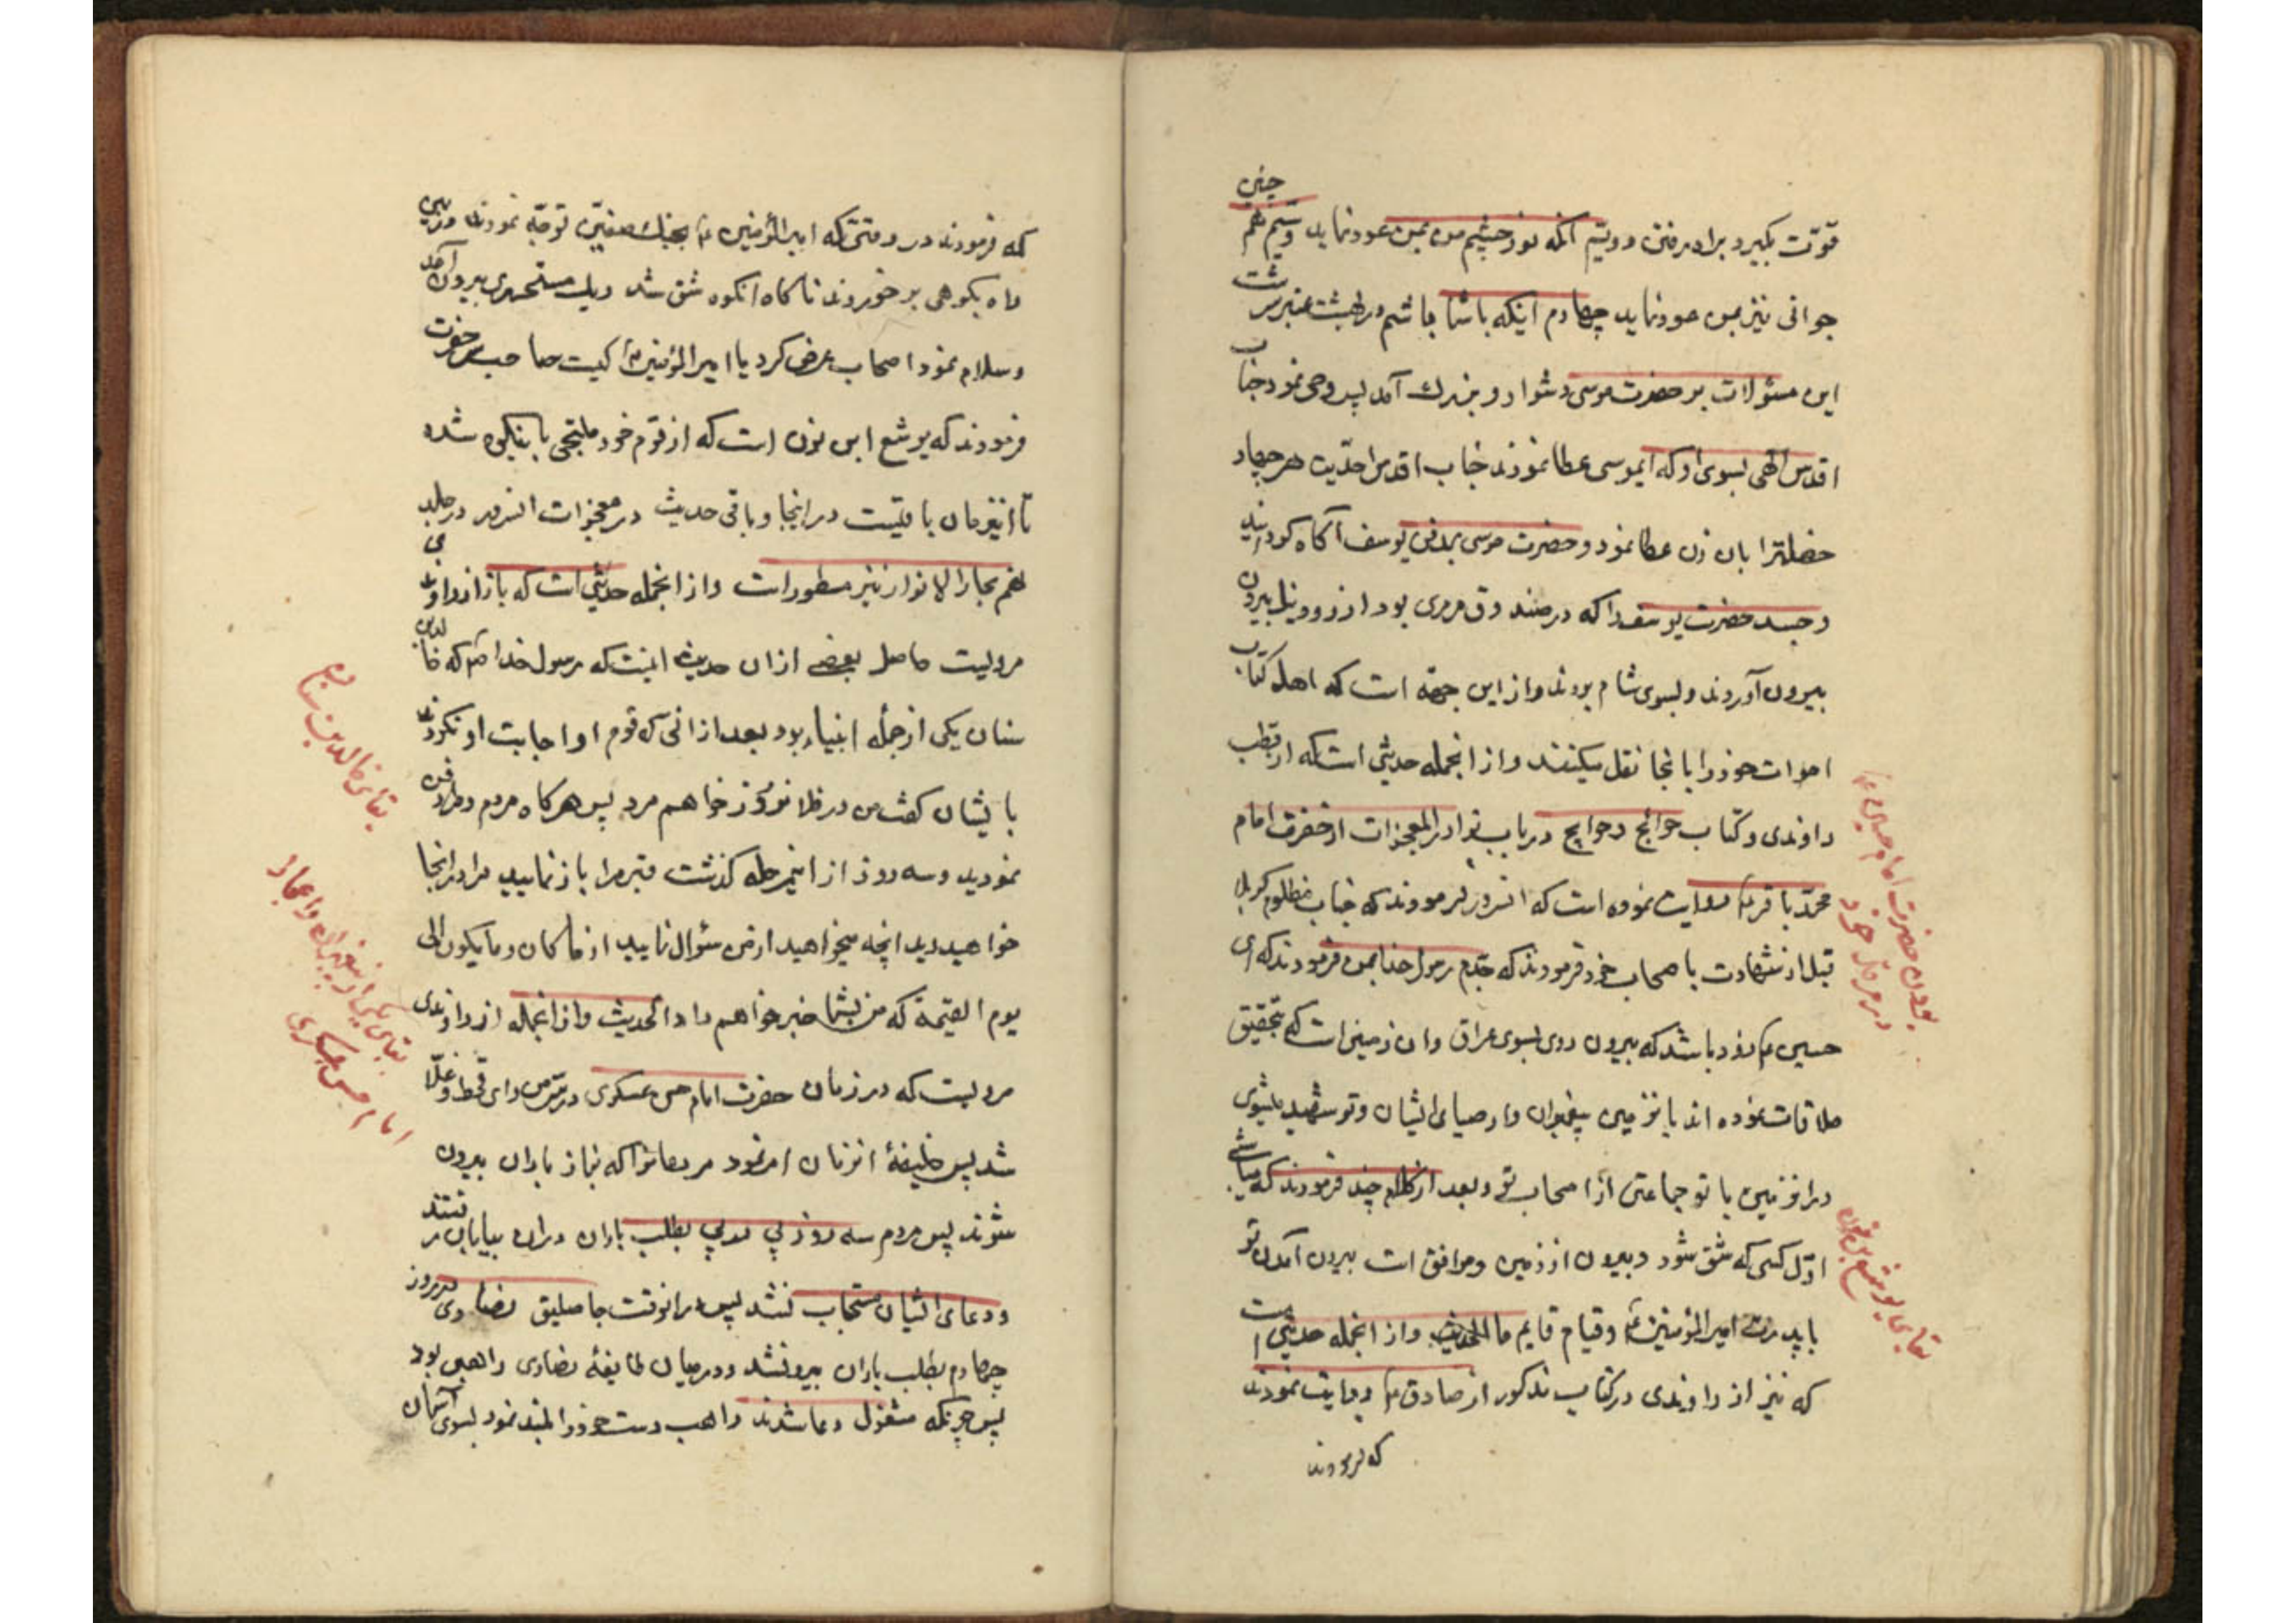 قوّت بگیرد براه رفتن دویّم آنکه نور چشیم من بمن عود نماید و سیّم هم چنین
جوانی نیز بمن عود نماید چهارم اینکه با شما باشم در بهشت عنبر سرشت
این مسئولات بر حضرت موسی دشوار و بزرک آمد پس وحی نمود جناب
اقدس الهی بسوی او که ایموسی عطا نمودند جناب اقدس احدّیت هر چهار
خصلترا بان زن عطا نمود و حضرت موسی بمدفن یوسف آکاه کردانید
و جسد حضرت یوسف را که در صندوق مرمری بود از رود نیل بیرون
بیرون آوردند و بسوی شام بردند و از این جهة است که اهل کتاب
اموات خود را بانجا نقل میکنند و از انجمله حدیثی است که از قطب
راوندی و کتاب خرائج و جرایح در باب نوادر المعجزات از حضرت امام
محمّد باقر ع روایت نموده است که انسرور فرمودند که جناب مظلوم کربلا
قبل از شهادت با صحاب خود فرمودند که جدّم رسول خدا بمن فرمودند که ای
حسین ع زود باشد که بیرون روی بسوی عراق و ان زمینی است که بتحقیق
ملاقات نموده اند بانزمین پیغمبران و اوصیای ایشان و تو شهید میشوی
در انزمین با تو جماعتی از اصحاب تو و بعد از کلام چند فرمودند که میباشی
اوّل کسی که شق شود و بیرون از زمین و موافق است بیرون آمدن تو
با پدرت امیر المؤمنین ع و قیام قایم ما الحدیث و از انجمله حدیثی است
که نیز از راوندی در کتاب مذکور از صادق ع روایت نمودند
که فرمودند
بودن حضرت امام حسین ع
در مرقد خود
بقای یوشع بن نون
که فرمودند در وقتی که امیر المؤمنین ع بجنک صفیّن توجّه نمودند در بین
راه بکوهی بر خوردند ناکاه انکوه شق شد و یک سنحهری بیرون آمد
و سلام نمود اصحاب عرض کرد یا امیر المؤمنین ع کیست صاحب حضرت
فرمودند که یوشع ابن نون است که از قوم خود ملتجی باینکوه شده
تا انیزمان باقیست در اینجا و باقی حدیث در معجزات انسرور در جلد
نهم بحار الانوار نیز مسطور است و از انجمله حدیثی است که باز از راوندی
مرویست حاصل بعضی از ان حدیث اینست که رسول خدا ص که خالد بن
سنان یکی از جمله انبیاء بود بعد از انی که قوم او اجابت او نکردند
بایشان کفت من در فلانروز خواهم مرد پس هر کاه مردم و مرا دفن
نمودید و سه روز از اینمرحله کذشت قبر مرا باز نمایید مرا در انجا
خواهید دید انچه میخواهید از من سئوال نمایید از ما کان و ما یکون الی
یوم القیمة که من بشما خبر خواهم داد الحدیث و از انجمله از راوندی
مرویست که در زمان حضرت امام حسن عسکری در سرّ من رای قحط و غلّا
شد پس خلیفهٔ انزمان امر نمود مردمانرا که بنماز باران بیرون
شوند پس مردم سه روز پی در پی بطلب باران در ان بیابان رفتند
و دعای ایشان مستجاب نشد پس در انوقت جاصلیق نصاری در روز
چهارم بطلب باران بیرونشد و در میان طایفهٔ نصاری راهبی بود
پس چونکه مشغول دعا شدند راهب دست خود را بلند نمود بسوی آسمان
بقای خالد بن سنان
بقای یکی از پیغمبران و اعجاز
امام حسن عسکری